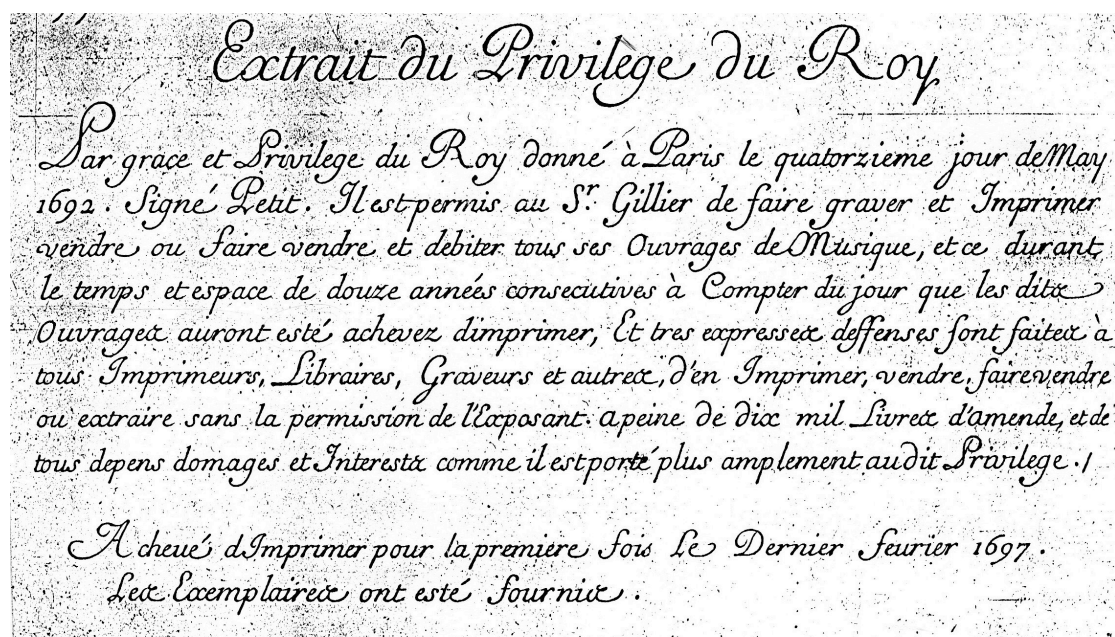 Extrait du Privilège du Roy
Par grace et Privilege du Roy donné à Paris le quatorzieme jour de May
1692. Signé Petit. Il est permis au Sr. Gillier de faire graver et Imprimer
vendre ou faire vendre et debiter tous ses Ouvrages de Musique, et ce durant
le temps et espace de douze années consecutives à Compter du jour que les dits
Ouvrages auront esté achevez dimprimer, Et tres expresses deffenses sont faites à
tous Imprimeurs, Libraires, Graveurs et autres, d'en Imprimer, vendre, faire vendre
ou extraire sans la permission de l'Exposant. apeine de dix mil Livres d'amende, et de
tous depens domages et Interests comme il est porté plus amplement audit Privilege./
Acheué dImprimer pour la premiere fois Le Dernier feurier 1697.
Les Exemplaires ont esté fournis.